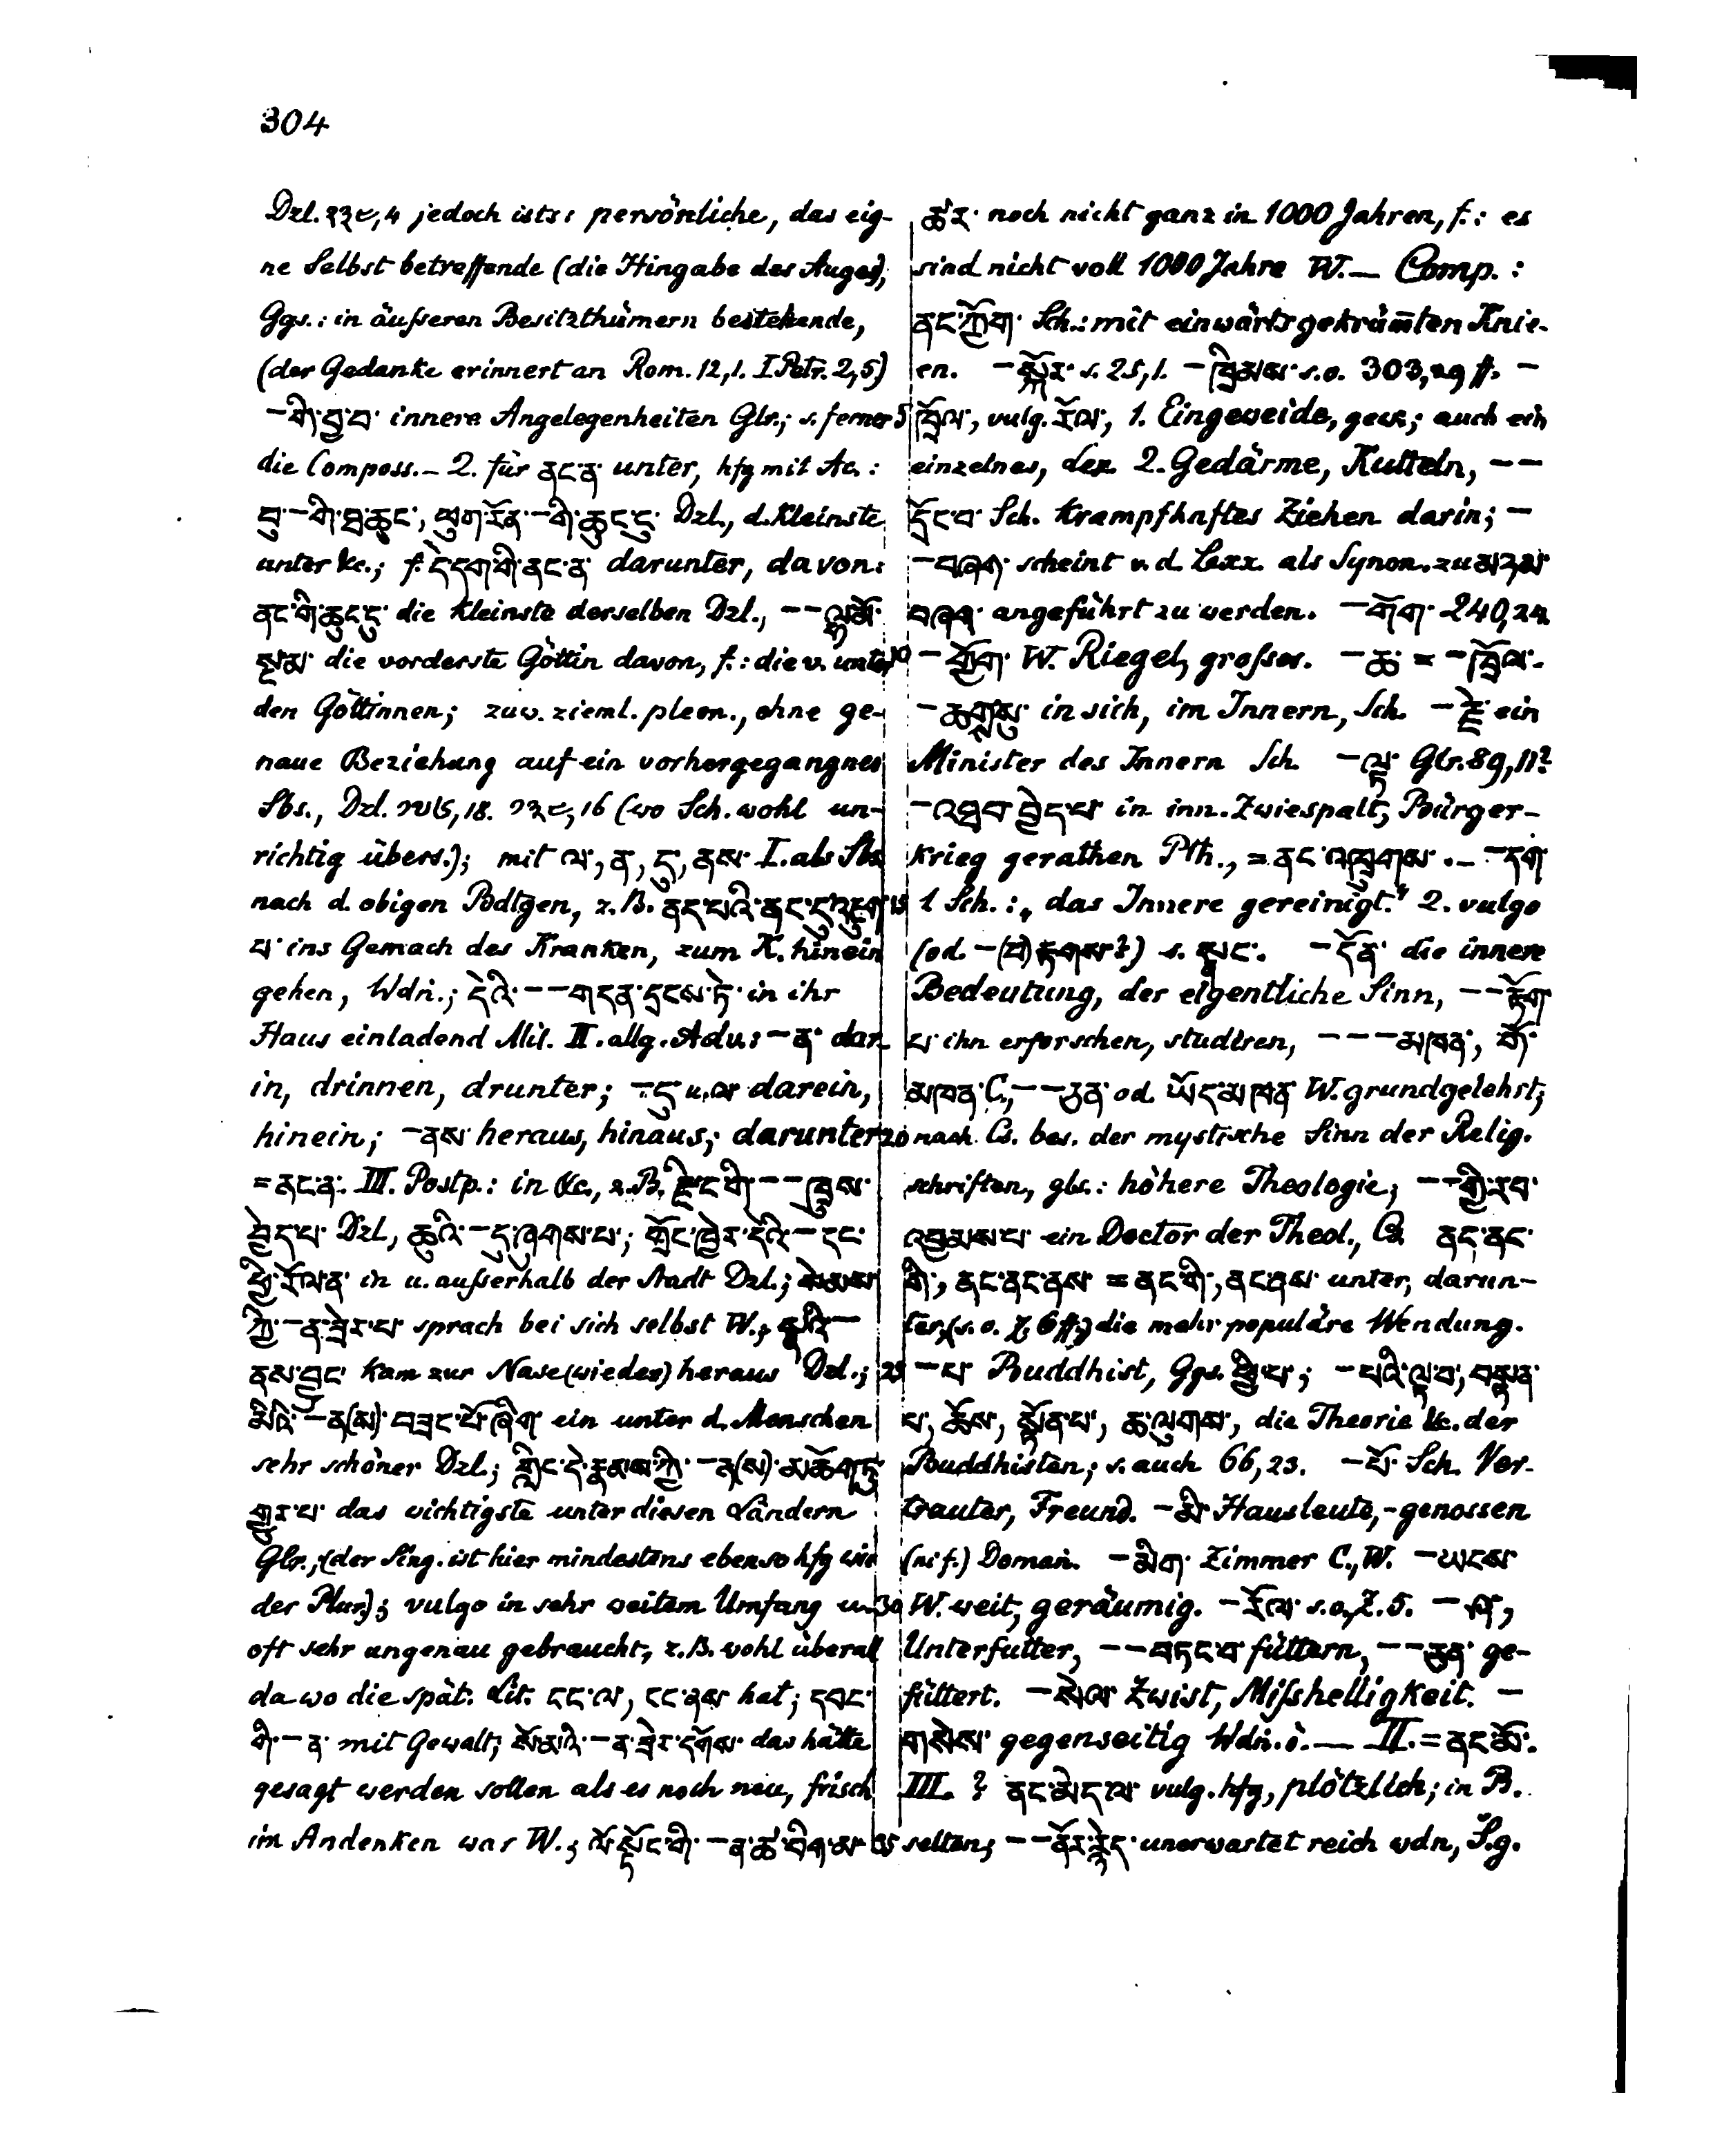 304
Dzl. ༢༣༤, 4 jedoch ists: persönliche, das eig-
ne Selbst betreffende (die Hingabe des Auges),
Ggs.: in äußeren Besitzthümern bestehende,
(der Gedanke erinnert an Rom. 12,1. I Petr. 2,5)
—གི་བྱ་བ་ innere Angelegenheiten Glr.; s. ferner
die Composs. — 2. für ནང་ན་ unter, hfg mit Ac.:
བུ་—གི་ཐ་ཆུང་, ཕུག་རོན་—གི་ཆུང་ངུ་ Dzl., d. kleinste
unter &c.; f. དེ་དག་གི་ནང་ན་ darunter, davon:
ནང་གི་ཆུང་ངུ་ die kleinste derselben Dzl., — — ལྷ་མོ་
སྔ་མ་ die vorderste Göttin davon, f.: die v. unter
den Göttinnen; zuw. zieml. pleon., ohne ge-
naue Beziehung auf ein vorhergegangnes
Sbs., Dzl. 18. ༢༣༤, 16 (wo Sch. wohl un-
richtig übers.); mit ལ་, ན་, དུ་, ནས་ I. als Sbs
nach d. obigen Bdtgen, z. B. ནད་པའི་ནང་དུ་འཇུག་
པ་ ins Gemach des Kranken, zum K. hinein
gehen, Wdn.; དེའི་ — — གདན་དྲངས་ཏེ་ in ihr
Haus einladend Mil. II. allg. Adv.: —ན་ dar-
in, drinnen, drunter; —དུ་ u. ལ་ darein,
hinein; —ནས་ heraus, hinaus; darunter
= ནང་ན་. III. Postp.: in &c., z. B. རྫིང་གི་ — — ཁྲུས་
བྱེད་པ་ Dzl., ཆུའི་—དུ་ཞུགས་པ་; གྲོང་ཁྱེར་དེའི་—དང་
ཕྱི་རོལ་ན་ in u. außerhalb der Stadt Dzl.; སེམས་
ཀྱི་—ན་ཟེར་པ་ sprach bei sich selbst W.; སྣའི་—
ནས་བྱུང་ kam zur Nase (wieder) heraus Dzl.;
མིའི་—ན(ས)་བཟང་པོ་ཞིག་ ein unter d. Menschen
sehr schöner Dzl.; གླིང་དེ་རྣམས་ཀྱི་—ན(ས)་མཆོག་ཏུ་
གྱུར་པ་ das wichtigste unter diesen Ländern
Glr.; (der Sing. ist hier mindestens ebenso hfg wie
der Plur.); vulgo in sehr weitem Umfang u.
oft sehr ungenau gebraucht, z. B. wohl überall
da wo die spät. Lit. ངང་ལ་, ངང་ནས་ hat; དབང་
གི་—ན་ mit Gewalt; སོ་མའི་—ན་ཟེར་དགོས་ das hätte
gesagt werden sollen als es noch neu, frisch
im Andenken war W.; ལོ་སྟོང་གི་—ན་ཚེ་བིག་མ་
5
10
15
20
25
30
35
ཚེར་ noch nicht ganz in 1000 Jahren, f.: es
sind nicht voll 1000 Jahre W. — Comp.:
ནང་ཀྱོག་ Sch.: mit einwärts gekrüm̅ten Knie-
en. —སྐོར་ s. 25,1. —ཁྲིམས་ s. o. 303,29 ff. —
ཁྲོལ་, vulg. རོལ་, 1. Eingeweide, gew.; auch ein
einzelnes, der. 2. Gedärme, Kutteln, — —
དྲོང་བ་ Sch. krampfhaftes Ziehen darin; —
—བཞག་ scheint v. d. Lexx. als Synon. zu མ་ར་མ་
བཞག་ angeführt zu werden. —གོག་ 240,24.
—གྱོག་ W. Riegel, großer. —ཆ་ = —ཁྲོལ་.
—ཆགསུ་ in sich, im Innern, Sch. —རྗེ་ ein
Minister des Innern Sch. —ལྟ་ Glr. 89,11?
—འཐབ་བྱེད་པ་ in inn. Zwiespalt, Bürger-
krieg gerathen Pth., = ནང་འཁྲུགས་. — —དག་
1 Sch.: „das Innere gereinigt." 2. vulgo
(od. —(བ)རྟགས་?) s. སྣང་. —དོན་ die innere
Bedeutung, der eigentliche Sinn, — —རྟོག་
པ་ ihn erforschen, studiren, — — —མཁན་, གོ་
མཁན་ C., — —ཅན་ od. ཡོད་མཁན་ W. grundgelehrt;
nach Cs. bes. der mystische Sinn der Relig.
schriften, gbr.: höhere Theologie; — —གྱི་རབ་
འབྱམས་པ་ ein Doctor der Theol., Cs. ནང་ནང་
གི་, ནང་ནང་ནས་ = ནང་གི་, ནང་ནས་ unter, darun-
ter, (s. o. Z. 6 ff.) die mehr populäre Wendung.
—པ་ Buddhist, Ggs. ཕྱི་པ་; —པའི་ལྟ་བ་, བསྟན་
པ་, ཆོས་, སྟོན་པ་, ཆ་ལུགས་, die Theorie &c. der
Buddhisten; s. auch 66,23. —པོ་ Sch. Ver-
trauter, Freund. —མི་ Hausleute, -genossen
(ni f.) Doman. —མིག་ Zimmer C., W. —ཡངས་
W. weit, geräumig. —རོལ་ s. o. Z. 5. —ཤ་,
Unterfutter, — —བཏང་བ་ füttern, — —ཅན་ ge-
füttert. —སེལ་ Zwist, Mißhelligkeit. —
གསེས་ gegenseitig Wdn. ò. — II. = ནང་མོ་.
III. ? ནང་མེད་ལ་ vulg. hfg, plötzlich; in B.
selten; — —ནོར་རྙེད་ unerwartet reich wdn, S.g.